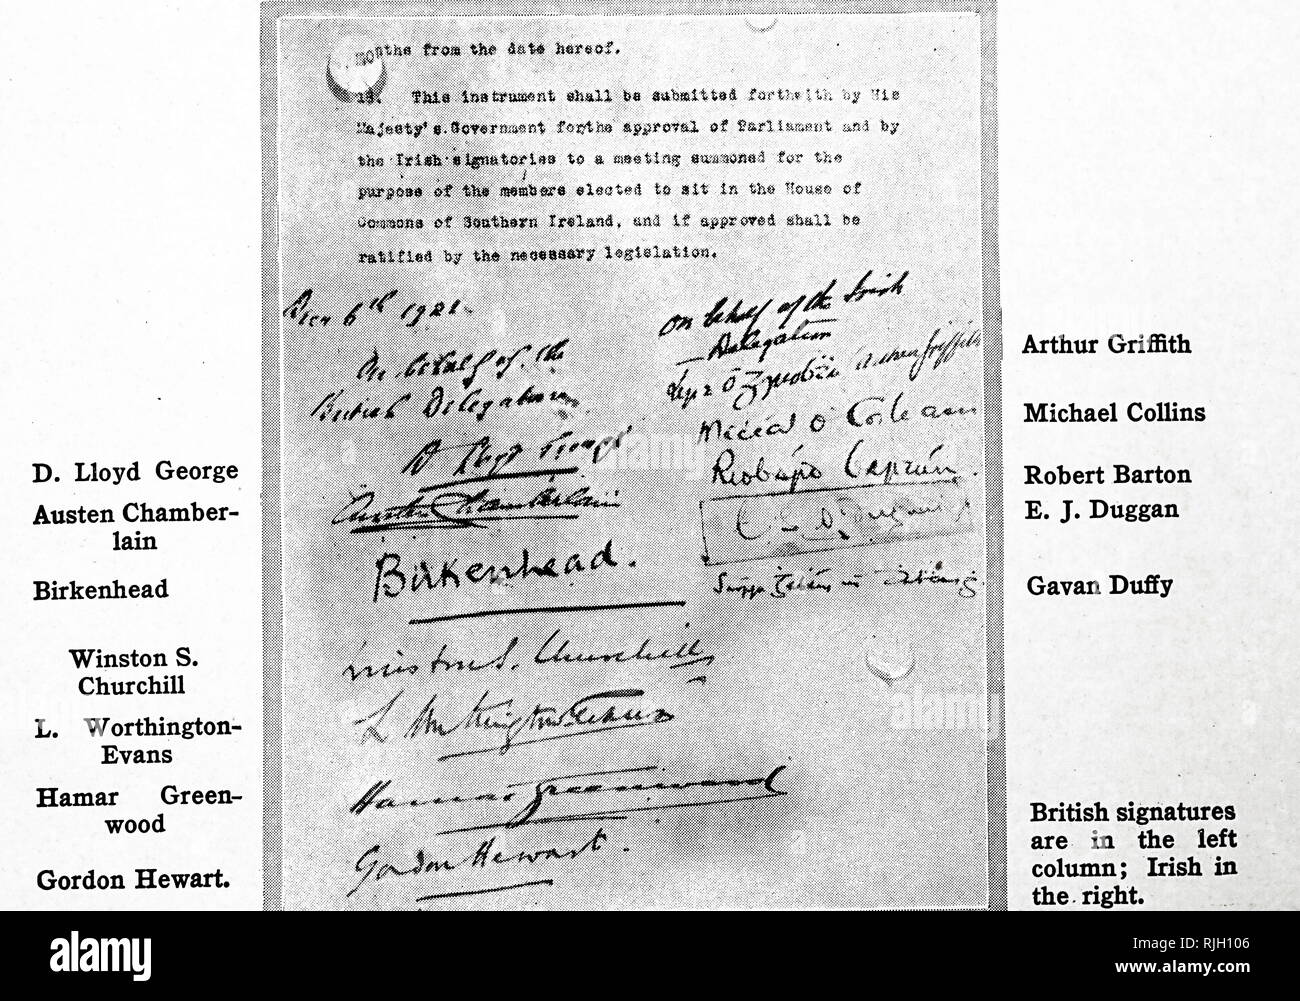 months from the date hereof.
18. This instrument shall be submitted forthwith by His
Majesty's Government for the approval of Parliament and by
the Irish signatories to a meeting summoned for the
purpose of the members elected to sit in the House of
Commons of Southern Ireland, and if approved shall be
ratified by the necessary legislation.
Decr 6th 1921.
On behalf of the
British Delegation
D Lloyd George
Austen Chamberlain
Birkenhead.
Winston S. Churchill
L Worthington-Evans
Hamar Greenwood
Gordon Hewart.
On behalf of the Irish
Delegation
Art Ó Gríobhtha Arthur Griffith
Mícheál Ó Coileain
Riobárd Bartún
E S Ó Dugain
D. Lloyd George
Austen Chamber-
lain
Birkenhead
Winston S.
Churchill
L. Worthington-
Evans
Hamar Green-
wood
Gordon Hewart.
Arthur Griffith
Michael Collins
Robert Barton
E. J. Duggan
Gavan Duffy
British signatures
are in the left
column; Irish in
the right.
alamy
alamy
Image ID: RJH106
www.alamy.com